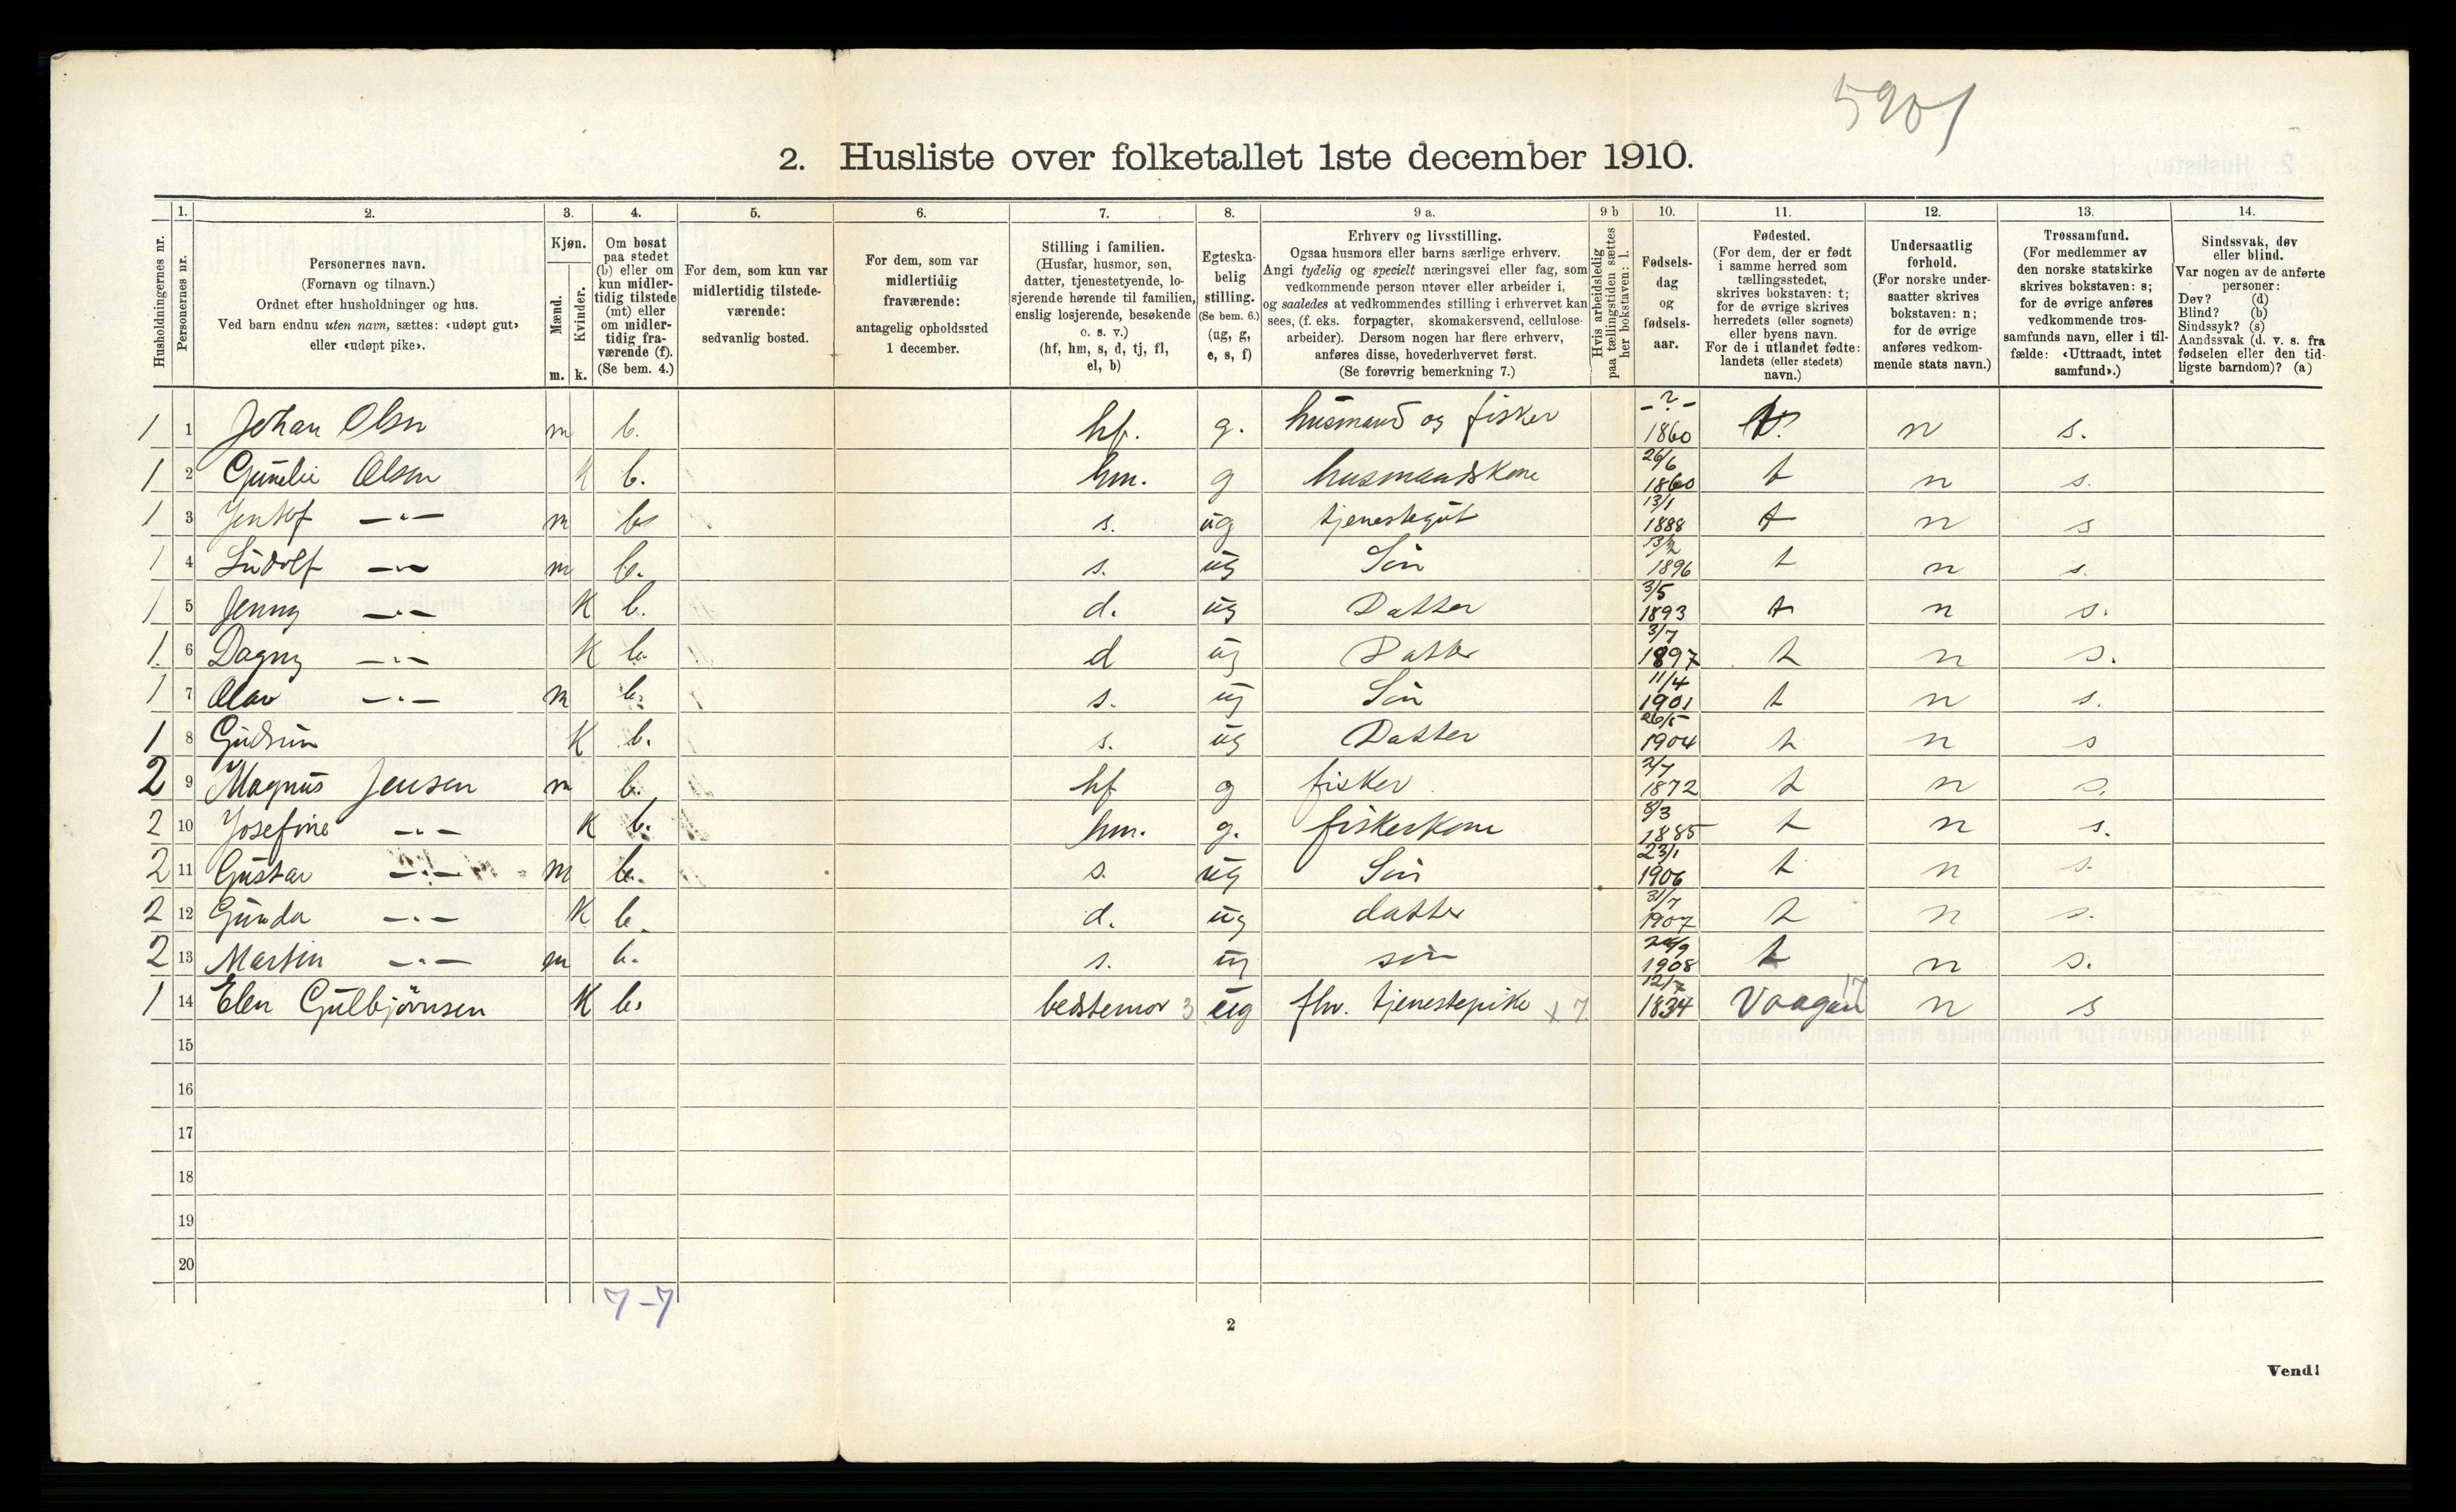 5901
2. Husliste over folketallet 1ste december 1910.
Husholdningernes nr. | 1. Personernes nr. | 2. Personernes navn. (Fornavn og tilnavn.) Ordnet efter husholdninger og hus. Ved barn endnu uten navn, sættes: «udøpt gut» eller «udøpt pike». | 3. Kjøn. Mænd. m. Kvinder. k. | 4. Om bosat paa stedet (b) eller om kun midlertidig tilstede (mt) eller om midlertidig fraværende (f). (Se bem. 4.) | 5. For dem, som kun var midlertidig tilstedeværende: sedvanlig bosted. | 6. For dem, som var midlertidig fraværende: antagelig opholdssted 1 december. | 7. Stilling i familien. (Husfar, husmor, søn, datter, tjenestetyende, losjerende hørende til familien, enslig losjerende, besøkende o. s. v.) (hf, hm, s, d, tj, fl, el, b) | 8. Egteskabelig stilling. (Se bem. 6.) (ug, g, e, s, f) | 9 a. Erhverv og livsstilling. Ogsaa husmors eller barns særlige erhverv. Angi tydelig og specielt næringsvei eller fag, som vedkommende person utøver eller arbeider i, og saaledes at vedkommendes stilling i erhvervet kan sees, (f. eks. forpagter, skomakersvend, cellulosearbeider). Dersom nogen har flere erhverv, anføres disse, hovederhvervet først. (Se forøvrig bemerkning 7.) | 9 b Hvis arbeidsledig paa tællingstiden sættes her bokstaven: l. | 10. Fødselsdag og fødselsaar. | 11. Fødested. (For dem, der er født i samme herred som tællingsstedet, skrives bokstaven: t; for de øvrige skrives herredets (eller sognets) eller byens navn. For de i utlandet fødte: landets (eller stedets) navn.) | 12. Undersaatlig forhold. (For norske undersaatter skrives bokstaven: n; for de øvrige anføres vedkommende stats navn.) | 13. Trossamfund. (For medlemmer av den norske statskirke skrives bokstaven: s; for de øvrige anføres vedkommende trossamfunds navn, eller i tilfælde: «Uttraadt, intet samfund».) | 14. Sindssvak, døv eller blind. Var nogen av de anførte personer: Døv? (d) Blind? (b) Sindssyk? (s) Aandssvak (d. v. s. fra fødselen eller den tidligste barndom)? (a)
1 | 1 | Johan Olsn | m | b. | hf. | g. | husmand og fisker | -?- 1860 | t | n | s.
1 | 2 | Olsen | K | b. | hm. | g | husmandskone | 26/6 1860 | t | n | s.
1 | 3 | Jentof —"— | m | b | s. | ug | tjenestegut | 13/1 1888 | t | n | s
1 | 4 | Ludolf —"— | m | b. | s. | ug | Søn | 1896 | t | n | s.
1 | 5 | Jenny —"— | K | b. | d. | ug | Datter | 3/5 1893 | t | n | s.
1. | 6 | Dagny —"— | K | b. | d | ug | Datter | 3/7 1897 | t | n | s.
1 | 7 | Olav —"— | m | b. | s. | ug | Søn | 11/4 1901 | t | n | s.
1 | 8 | Gudrun | K | b. | s. | ug | Datter | 26/5 1904 | t | n | s
2 | 9 | Magnus Jensen | m | b. | hf | g | fisker | 2/7 1872 | t | n | s.
2 | 10 | Josefine —"— | K | b. | hm. | g. | fiskerkone | 8/3 1885 | t | n | s.
2 | 11 | Gustav —"— | m | b. | s. | ug | Søn | 23/1 1906 | t | n | s.
2 | 12 | Gunda —"— | K | b. | d. | ug | datter | 31/7 1907 | t | n | s.
2 | 13 | Martin —"— | m | b. | s. | ug | søn | 1908 | t | n | s.
1 | 14 | Elen Gulbjörnsen | K | b. | bedstemor 3 | ug | fhv. tjenestepike x 7 | 12/7 1834 | Vaagan 17 | n | s
15
16
17
18
19
20
7-7
2
Vend!